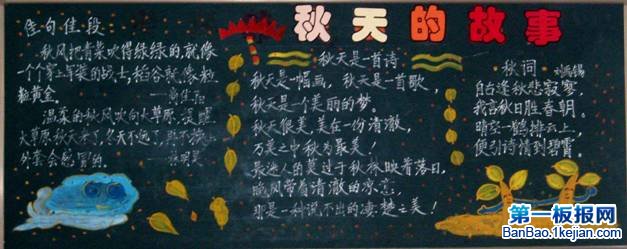 秋天的故事
佳句佳段
秋风把青菜吹得绿绿的就像
一个个穿上军装的战士,稻谷就像粒
粒黄金。
温柔的秋风吹向大草原,提醒
大草原秋天来了,冬天不远了,再不换
外套会感冒的。
秋天是一首诗
秋天是一幅画,秋天是一首歌,
秋天是一个美丽的梦。
秋天很美,美在一份清澈,
万美之中秋为最美!
最迷人的莫过于秋林映着落日,
晚风带着清澈的凉意,
那是一种说不出的凄楚之美!
秋词 刘禹锡
自古逢秋悲寂寥,
我言秋日胜春朝。
晴空一鹤排云上,
便引诗情到碧霄。
第一板报网
BanBao.1kejian.com